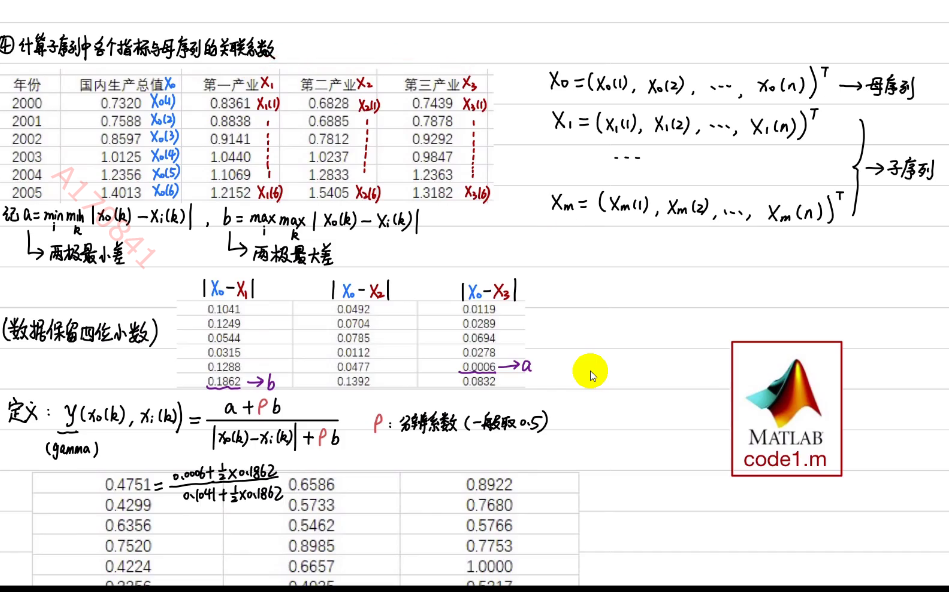 ④计算子序列中各个指标与母序列的关联系数
年份 国内生产总值X₀ 第一产业X₁ 第二产业X₂ 第三产业X₃
2000 0.7320 X₀(1) 0.8361 X₁(1) 0.6828 X₂(1) 0.7439 X₃(1)
2001 0.7588 X₀(2) 0.8838 0.6885 0.7878
2002 0.8597 X₀(3) 0.9141 0.7812 0.9292
2003 1.0125 X₀(4) 1.0440 1.0237 0.9847
2004 1.2356 X₀(5) 1.1069 1.2833 1.2363
2005 1.4013 X₀(6) 1.2152 X₁(6) 1.5405 X₂(6) 1.3182 X₃(6)
X₀=(X₀(1), X₀(2), ⋯, X₀(n))ᵀ →母序列
X₁=(X₁(1), X₁(2), ⋯, X₁(n))ᵀ
⋯
→子序列
Xm=(Xm(1), Xm(2), ⋯, Xm(n))ᵀ
A170841
记a=min_i min_k |x₀(k)-xᵢ(k)|, b=max_i max_k |x₀(k)-xᵢ(k)|
→两极最小差 →两极最大差
|X₀-X₁| |X₀-X₂| |X₀-X₃|
(数据保留四位小数)
0.1041 0.0492 0.0119
0.1249 0.0704 0.0289
0.0544 0.0785 0.0694
0.0315 0.0112 0.0278
0.1288 0.0477 0.0006→a
0.1862→b 0.1392 0.0832
定义: y(x₀(k), xᵢ(k))=(a+ρb)/(|x₀(k)-xᵢ(k)|+ρb) ρ:分辨系数(一般取0.5)
(gamma)
0.4751=(0.0006+½×0.1862)/(0.1041+½×0.1862) 0.6586 0.8922
0.4299 0.5733 0.7680
0.6356 0.5462 0.5766
0.7520 0.8985 0.7753
0.4224 0.6657 1.0000
MATLAB
code1.m